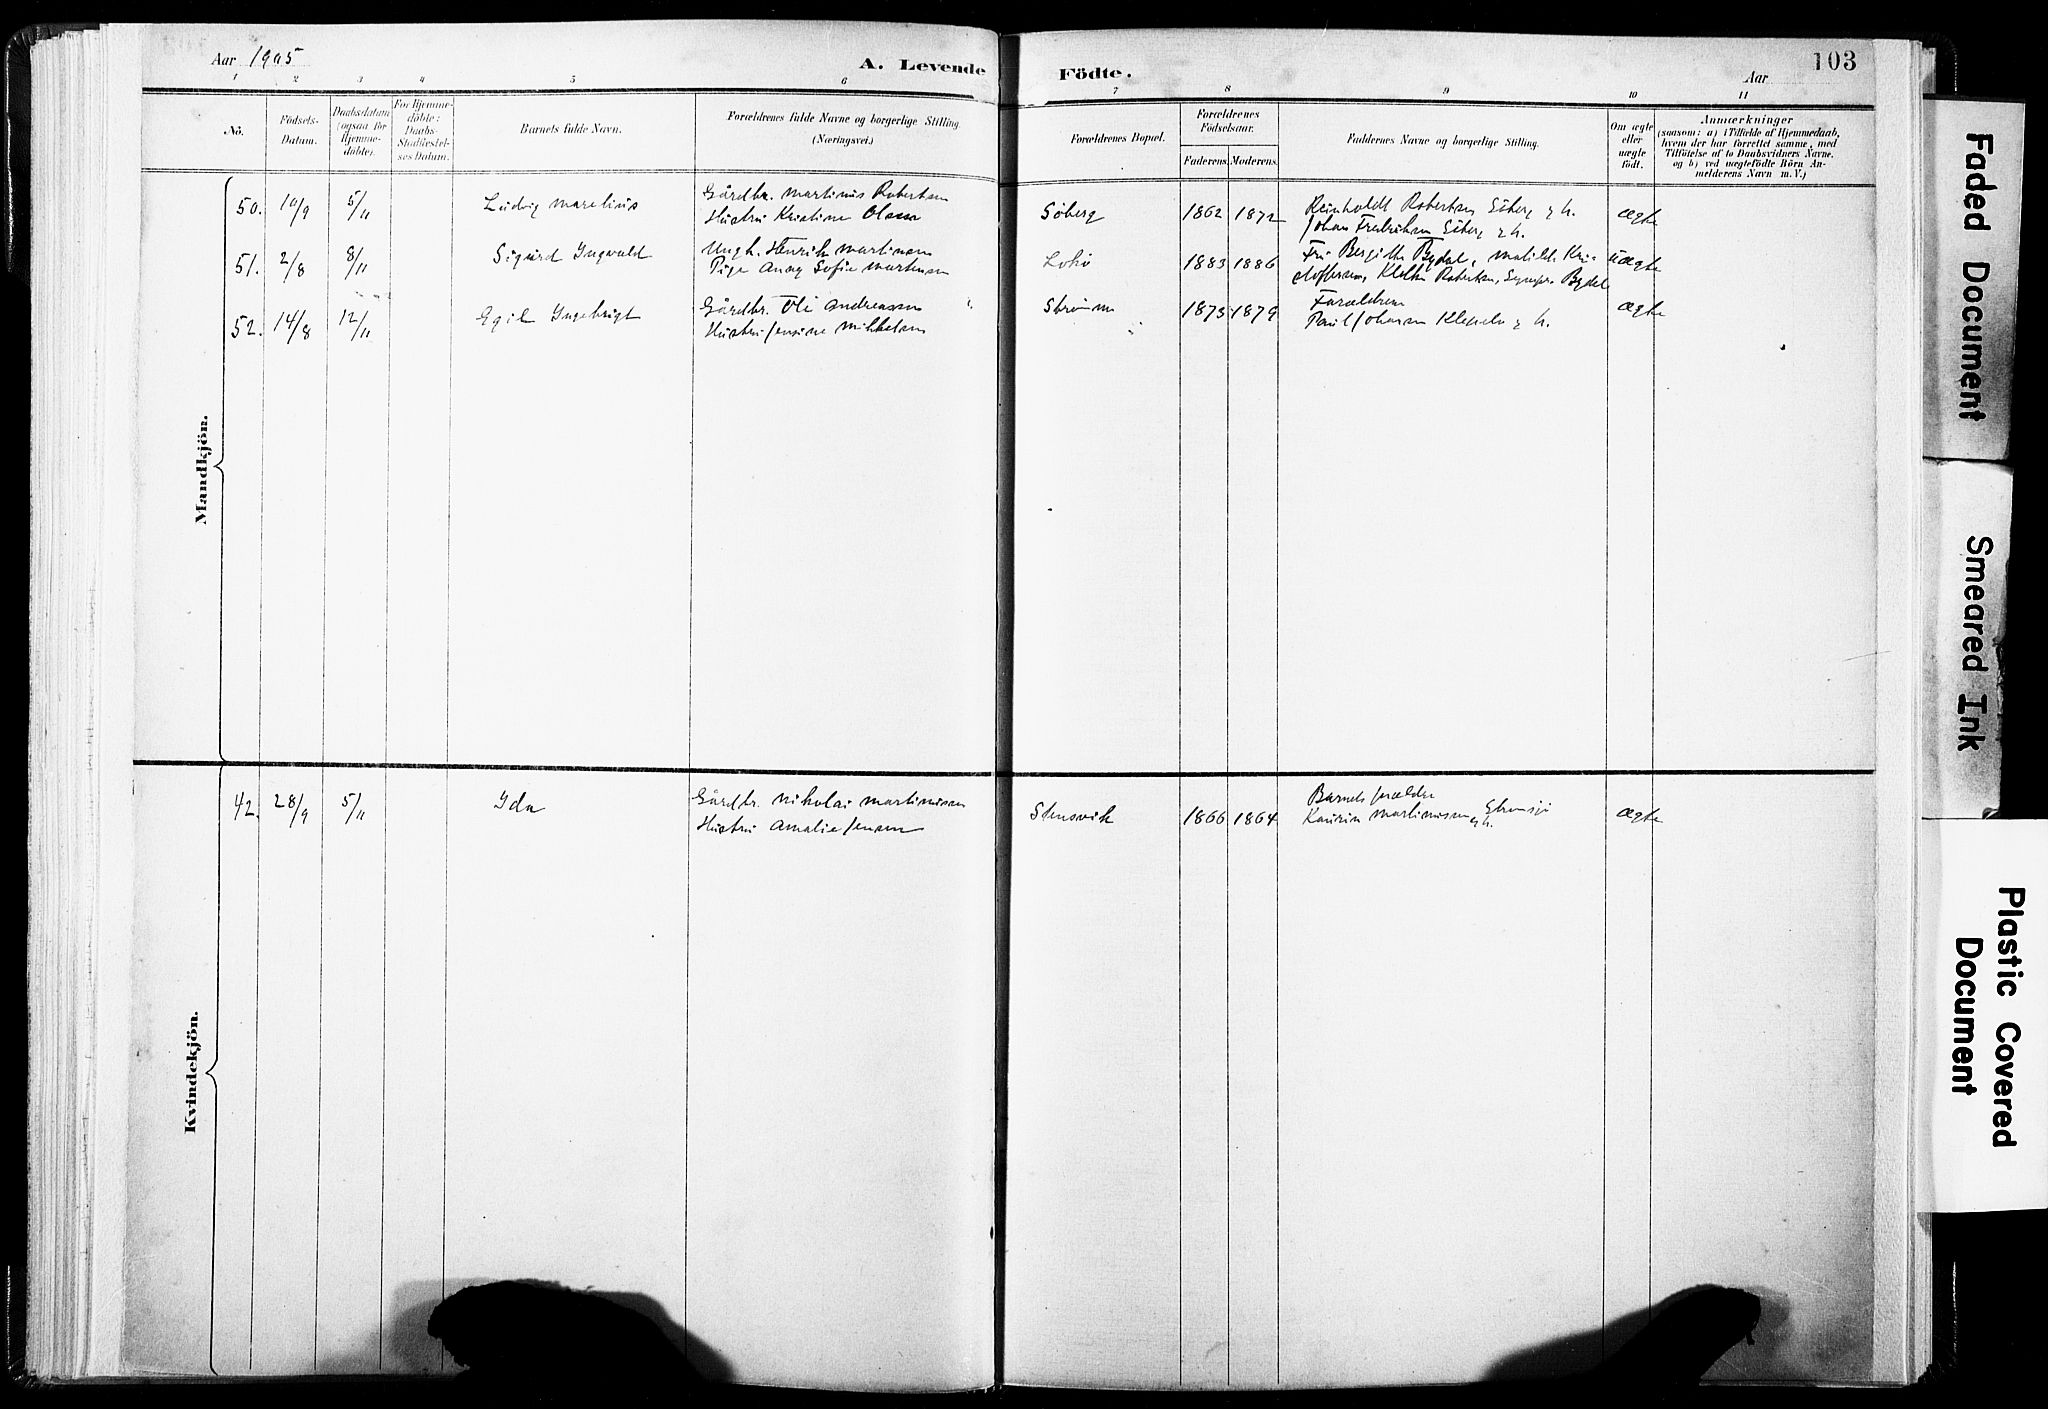 Aar 1905
A. Levende Födte.
Aar
103
1 2 3 4 5 6 7 8 9 10 11
No.
Födsels-
Datum.
Daabsdatum
(ogsaa for
Hjemme-
döbte).
For Hjemme-
döbte:
Daabs-
Stadfæstel-
ses Datum.
Barnets fulde Navn.
Forældrenes fulde Navne og borgerlige Stilling
(Næringsvei.)
Forældrenes Bopæl.
Forældrenes
Födselsaar.
Faderens. Moderens.
Faddernes Navne og borgerlige Stilling.
Om ægte
eller
uægte
födt.
Anmærkninger
(saasom: a) i Tilfælde af Hjemmedaab,
hvem der har forrettet samme, med
Tilföielse af to Daabsvidners Navne.
og b) ved uægtefödte Börn An-
melderens Navn m. V.)
Mandkjön.
50. 10/9 5/11 Ludvig Marelius Gårdbr. Martinus Robertsen
Hustru Kristine Olsen
Søberg 1862 1872 Reinholdt Robertsen Søberg & h.
Johan Fredriksen Søberg & h.
ægte
51. 2/8 8/11 Sigurd Ingvald Ungk. Henrik Martinsen
Pige Anny Sofie Martinsen
1883 1886 Fru Bergitte Bydal, Matilde Kri-
stoffersen, Robertsen, Bydal
uægte
52. 14/8 12/11 Egil Ingebrigt Gårdbr. Ole Andreassen
Hustru Jensine Mikkelsen
Strømm 1873 1879 Forældrene
Paul Johansen & h.
ægte
Kvindekjön.
42. 28/9 5/11 Ida Gårdbr. Nikolai Martinussen
Hustru Amalie Jensen
Stensvik 1866 1864 Barnets forældre
Martinussen & h.
ægte
Faded Document
Smeared Ink
Plastic Covered
Document